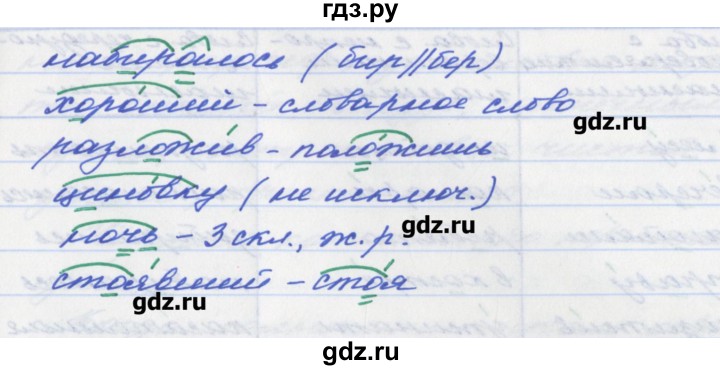 гдз.ру
набиралось (бир//бер)
хороший – словарное слово
gdz.ru
разложив – положишь
циновку (не исключ.)
ночь – 3 скл., ж. р.
gdz.ru
стоявший – стоя
gdz.ru
gdz.ru